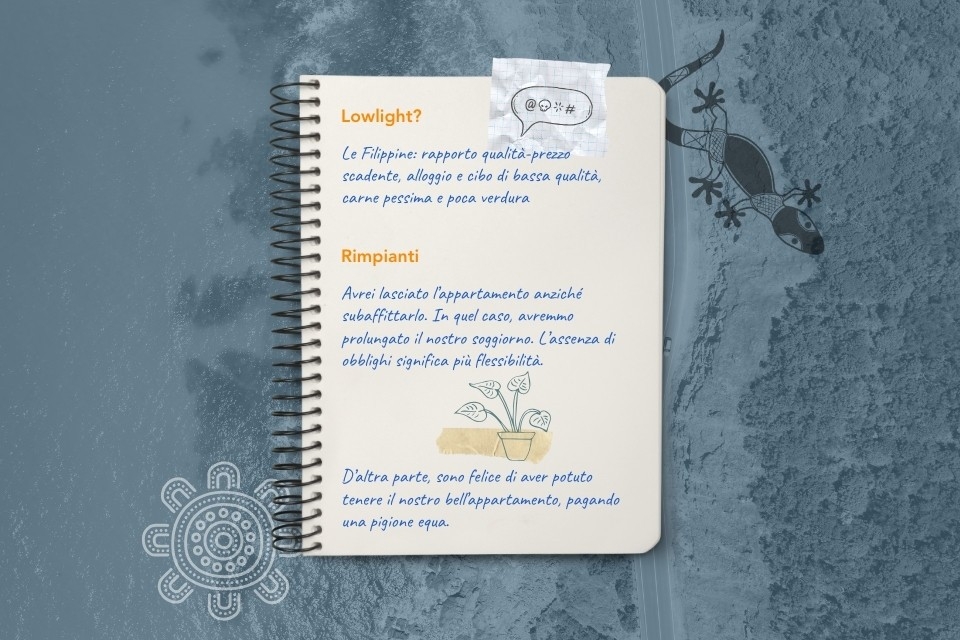 @#
Lowlight?
Le Filippine: rapporto qualità-prezzo
scadente, alloggio e cibo di bassa qualità,
carne pessima e poca verdura
Rimpianti
Avrei lasciato l'appartamento anziché
subaffittarlo. In quel caso, avremmo
prolungato il nostro soggiorno. L'assenza di
obblighi significa più flessibilità.
D'altra parte, sono felice di aver potuto
tenere il nostro bell'appartamento, pagando
una pigione equa.